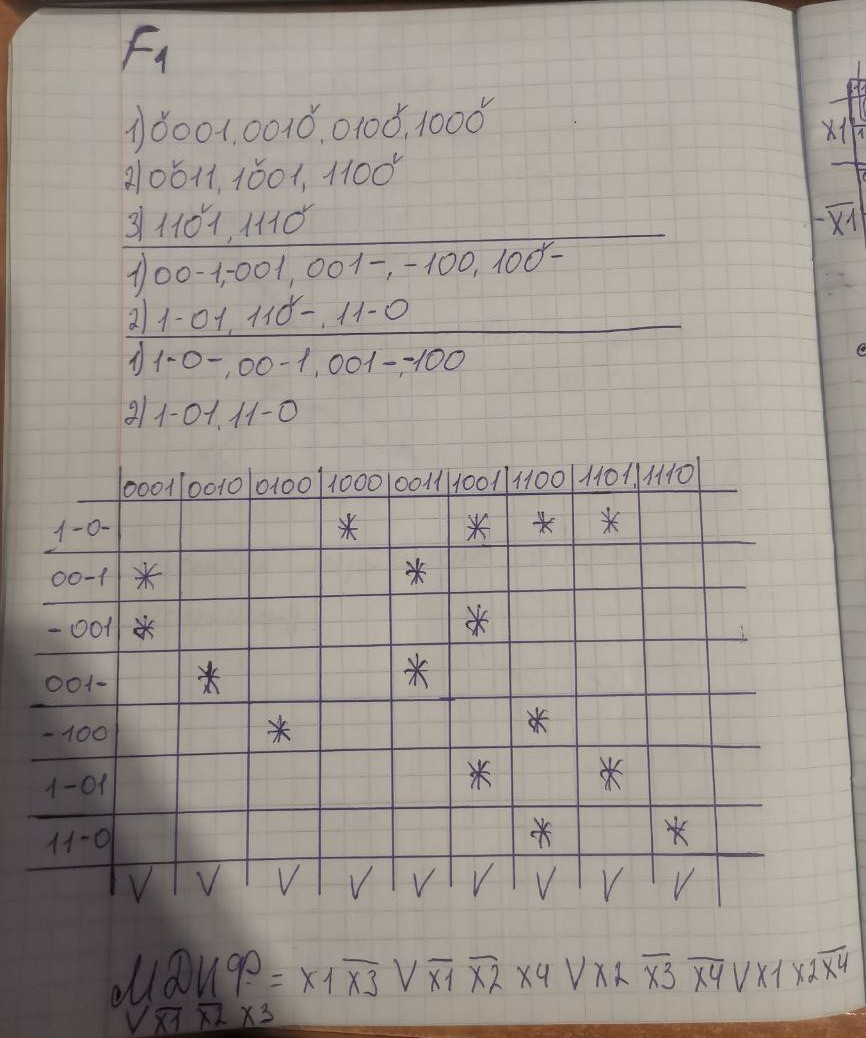 F1
1) 0001, 0010, 0100, 1000
2) 0011, 1001, 1100
3) 1101, 1110
1) 00-1, -001, 001-, -100, 100-
2) 1-01, 110-, 11-0
1) 1-0-, 00-1, 001-, -100
2) 1-01, 11-0
0001 0010 0100 1000 0011 1001 1100 1101 1110
1-0- * * * *
00-1 * *
-001 * *
001- * *
-100 * *
1-01 * *
11-0 * *
V V V V V V V V V
МДНФ = x1 x̅3̅ V x̅1̅ x̅2̅ x4 V x2 x̅3̅ x̅4̅ V x1 x2 x̅4̅
V x̅1̅ x̅2̅ x3
x1
x̅1̅